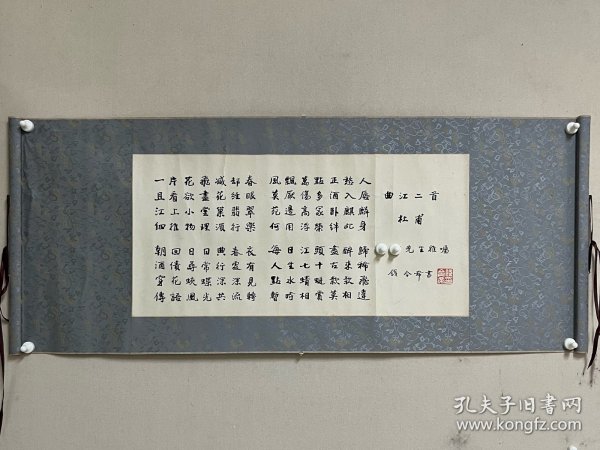 曲江二首
杜甫
一片花飛減卻春 風飄萬點正愁人
且看欲盡花經眼 莫厭傷多酒入脣
江上小堂巢翡翠 花邊高冢臥麒麟
細推物理須行樂 何用浮榮絆此身
朝回日日典春衣 每日江頭盡醉歸
酒債尋常行處有 人生七十古來稀
穿花蛺蝶深深見 點水蜻蜓款款飛
傳語風光共流轉 暫時相賞莫相違
先生雅囑
書
孔夫子旧书网
www.kongfz.com